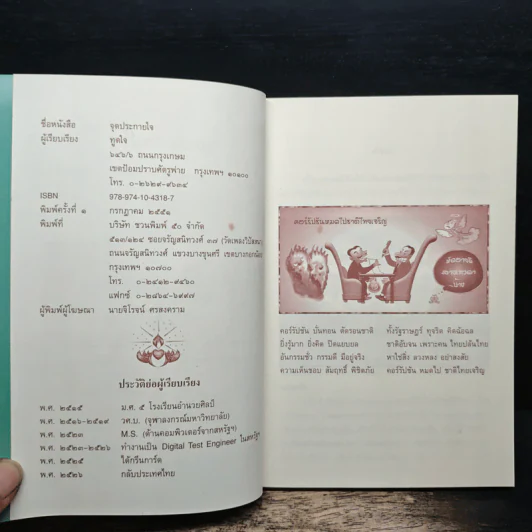 ชื่อหนังสือ จุดประกายใจ
ผู้เรียบเรียง ทูตใจ
๖๔๖/๖ ถนนกรุงเกษม
เขตป้อมปราบศัตรูพ่าย กรุงเทพฯ ๑๐๑๐๐
โทร. ๐-๒๖๒๙-๙๖๓๔
ISBN 978-974-10-4318-7
พิมพ์ครั้งที่ ๑ กรกฎาคม ๒๕๕๑
พิมพ์ที่ บริษัท ชวนพิมพ์ ๕๐ จำกัด
๕๑๓/๑๒๔ ซอยจรัญสนิทวงศ์ ๓๗ (วัดเพลงวิปัสสนา)
ถนนจรัญสนิทวงศ์ แขวงบางขุนศรี เขตบางกอกน้อย
กรุงเทพฯ ๑๐๗๐๐
โทร. ๐-๒๔๑๒-๙๔๖๐
แฟกซ์ ๐-๒๘๖๔-๖๙๙๗
ผู้พิมพ์ผู้โฆษณา นายจิโรจน์ ศรสงคราม
ประวัติย่อผู้เรียบเรียง
พ.ศ. ๒๕๑๕ ม.ศ. ๕ โรงเรียนอำนวยศิลป์
พ.ศ. ๒๕๑๖-๒๕๑๙ วศ.บ. (จุฬาลงกรณ์มหาวิทยาลัย)
พ.ศ. ๒๕๒๓ M.S. (ด้านคอมพิวเตอร์จากสหรัฐฯ)
พ.ศ. ๒๕๒๓-๒๕๒๖ ทำงานเป็น Digital Test Engineer ในสหรัฐฯ
พ.ศ. ๒๕๒๕ ได้กรีนการ์ด
พ.ศ. ๒๕๒๖ กลับประเทศไทย
คอร์รัปชันหมดไปชาติไทยเจริญ
คอร์รัปชัน บั่นทอน ตัดรอนชาติ ทั้งราษฎร์ ทุจริต คิดฉ้อฉล
ยิ่งรู้มาก ยิ่งคิด ปิดแยบยล ชาติอับจน เพราะคน ไทยปล้นไทย
อันกรรมชั่ว กรรมดี มีอยู่จริง หาใช่สิ่ง ลวงหลอง อย่าสงสัย
ความเต้นชอบ สัมฤทธิ์ พิชิตภัย คอร์รัปชัน หมดไป ชาติไทยเจริญ